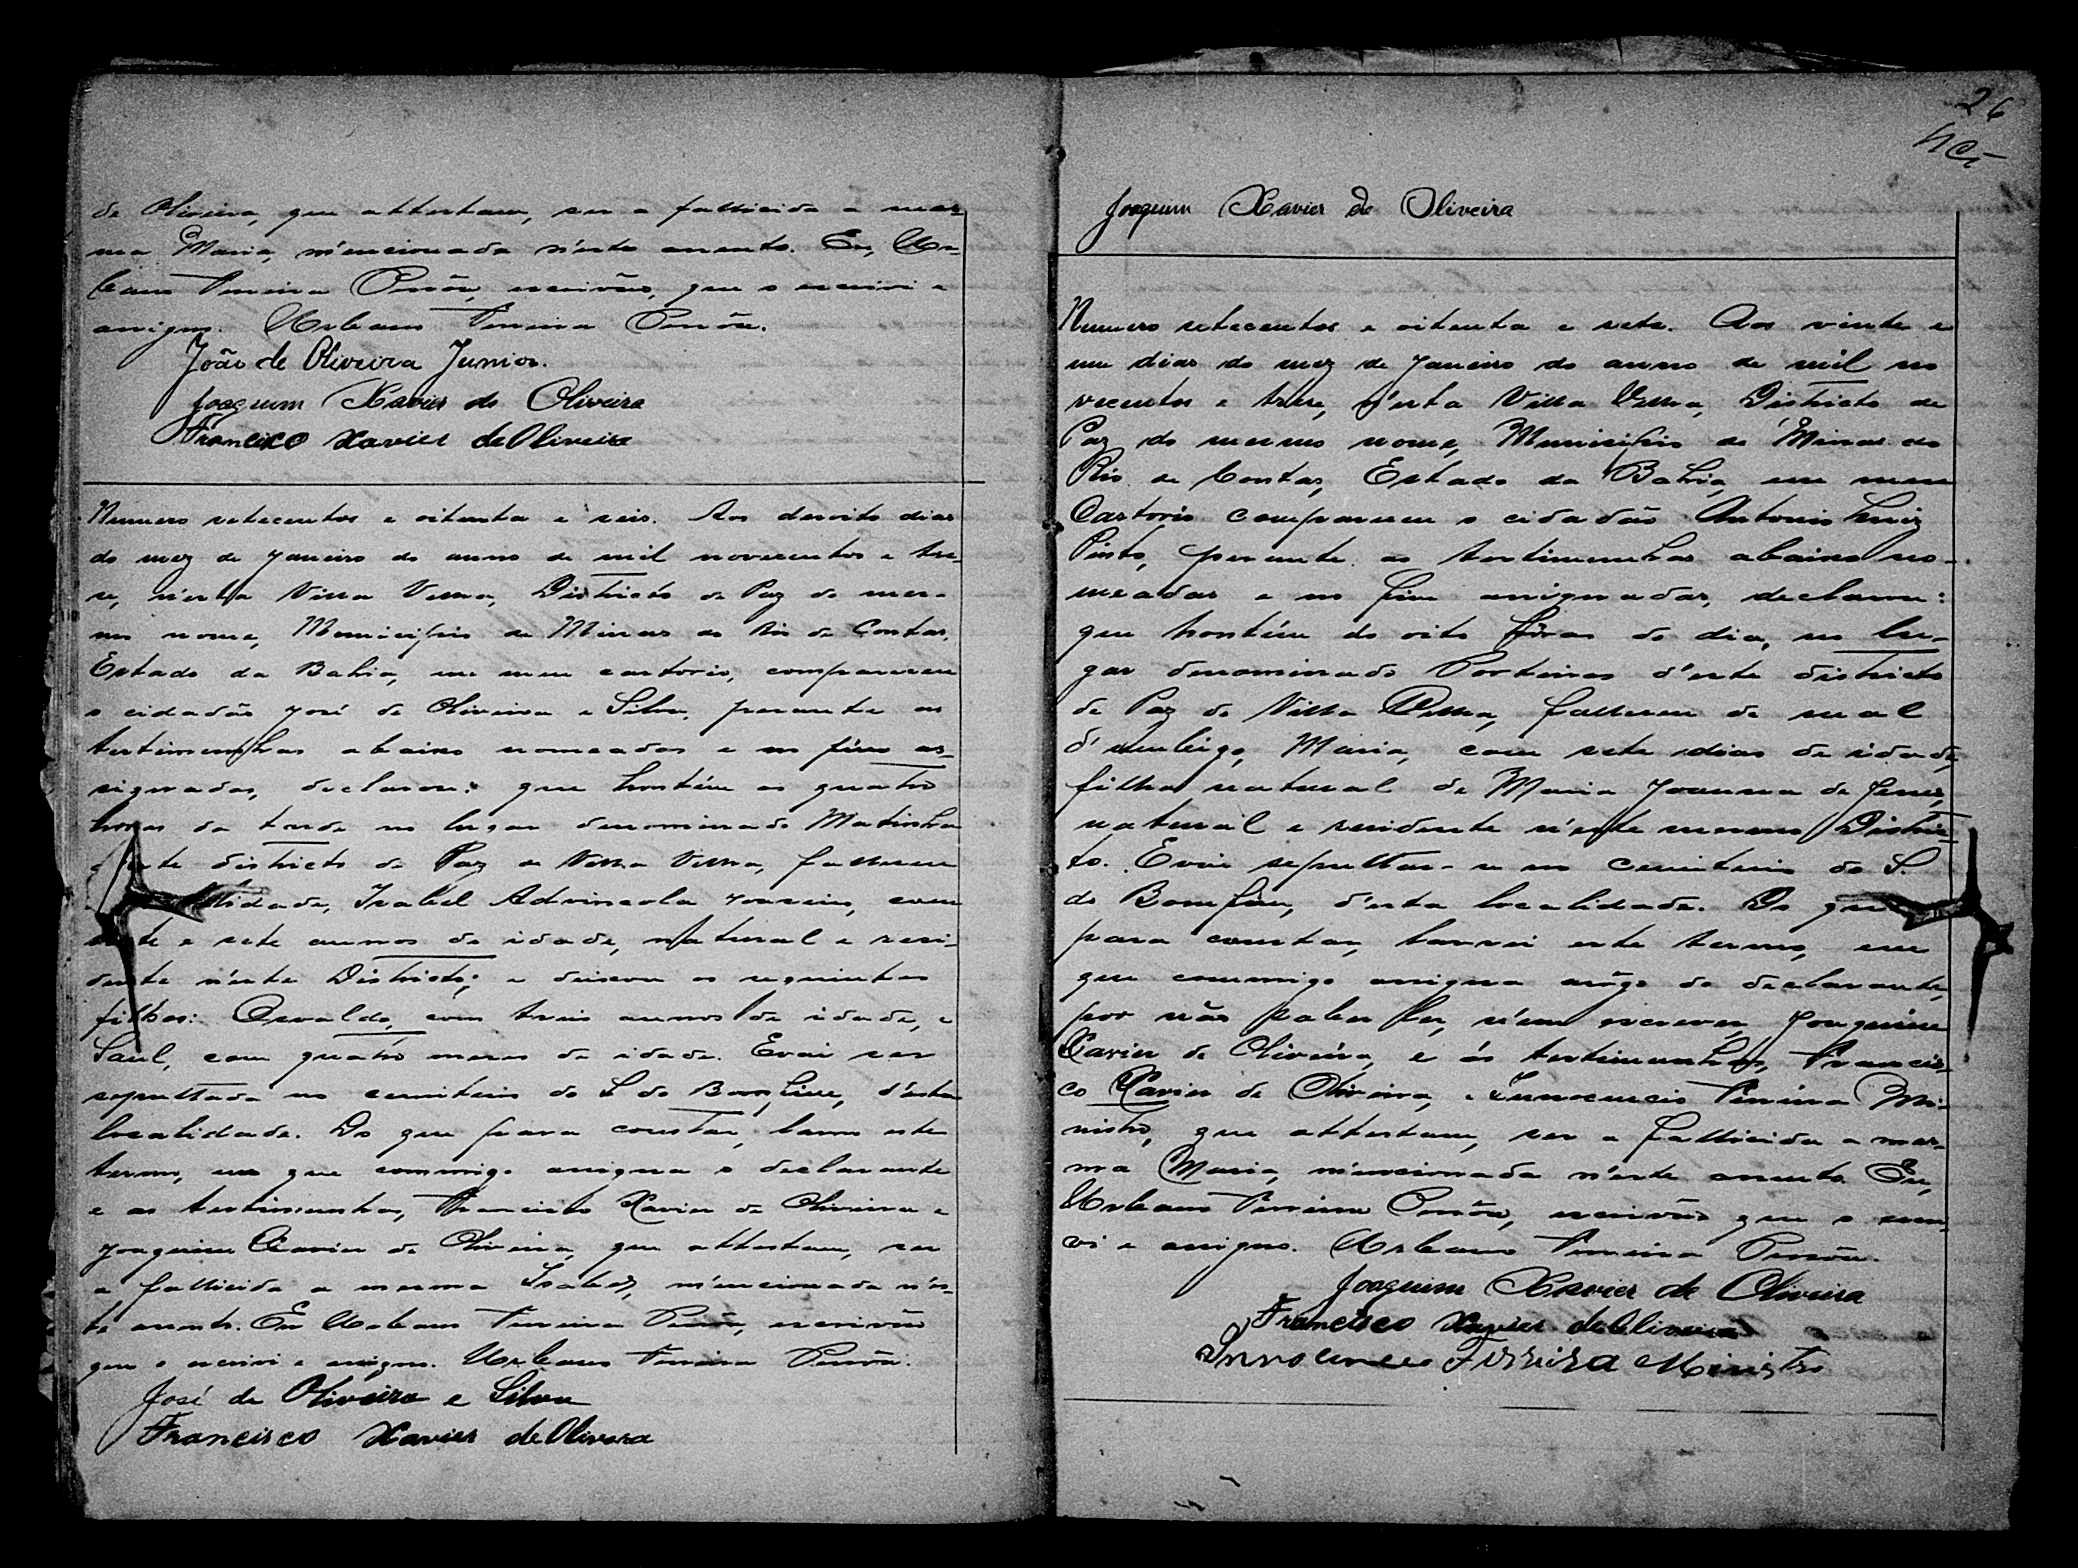 de Oliveira, que attestam, ser a fallicida a mes-
ma Maria, mencionada n'este acento. Eu, Ur-
bano Pereira, escrivão, que o escrivi e
assigno. Urbano Pereira
João de Oliveira Junior.
Joaquim Xavier de Oliveira
Francisco Xavier de Oliveira
Numero setecentos e oitenta e seis. Aos desoito dias
do mez de Janeiro do anno de mil novecentos e tre-
se, n'esta Villa Velha, Districto de Paz do mes-
mo nome, Municipio de Minas do Rio de Contas,
Estado da Bahia, em meu cartorio, compareceu
o cidadão José de Oliveira e Silva, perante as
testimunhas abaixo nomeadas e no fim as-
signadas, declarou: que hontém as quatro
horas da tarde no lugar denominado Matinha
d'este districto de Paz de Villa Velha, falleceu
Isabel Advincola com
e sete annos de idade, natural e resi-
dente n'este Districto; e deixou os seguintes
filhos: Osvaldo, com treis annos de idade, e
Saul, com quatro meses de idade. E vai ser
sepultada no cemiterio do S. do Bomfim, d'esta
localidade. Do que para constar, lavro este
termo, em que commigo assigna o declarante
e as testimunhas, Francisco Xavier de Oliveira e
Joaquim Xavier de Oliveira, que attestam, ser
a fallicida a mesma Isabel, mencionada n'es-
te acento. Eu Urbano Pereira, escrivão
que o escrivi e assigno. Urbano Pereira
José de Oliveira e Silva
Francisco Xavier de Olivera
26
Joaquim Xavier de Oliveira
Numero setecentos e oitenta e sete. Aos vinte e
um dias do mez de Janeiro do anno de mil no
vecentos e trese, n'esta Villa Velha, Districto de
Paz do mesmo nome, Municipio de Minas do
Rio de Contas, Estado da Bahia, em meu
Cartorio compareceu o cidadão Antonio Luiz
Pinto, perante as testimunhas abaixo no-
meadas e no fim assignadas, declarou:
que hontém ás oito horas do dia, no lu-
gar denominado Porteiras d'este districto
de Paz de Villa Velha, falleceu de mal
d'umbigo, Maria, com sete dias de idade,
filha natural de Maria Joanna de Jesus,
natural e residente n'este mesmo Distric-
to. E vai sepultar-se no cemiterio do S.
do Bomfim, d'esta localidade. Do que
para constar, lavrei este termo, em
que commigo assigna arôgo do declarante,
por não saber ler, n'em escrever, Joaquim
Xavier de Oliveira, e ás testimunhas, Francis-
co Xavier de Oliveira, e Innocencio Ferreira Mi-
nistro, que attestam, ser a fallicida a mes-
ma Maria, mencionada n'este acento. Eu,
Urbano Pereira, escrivão que o escri-
vi e assigno. Urbano Pereira
Joaquim Xavier de Oliveira
Francisco Xavier de Oliveira
Innocencio Ferreira Ministro